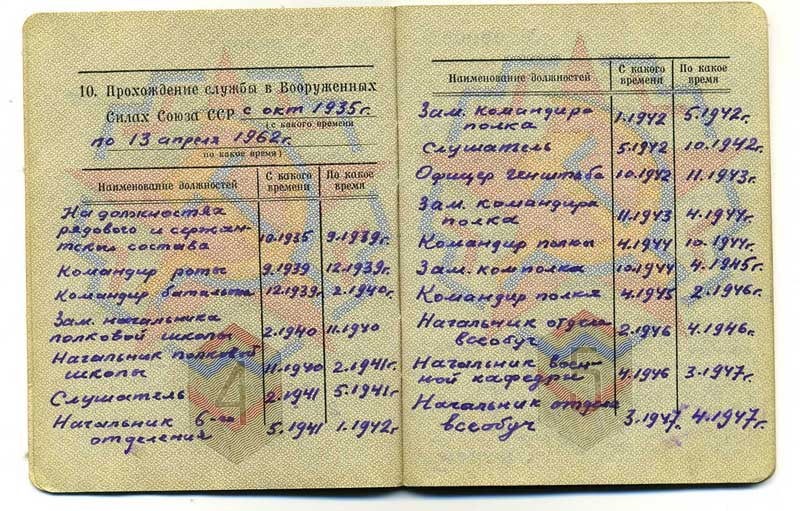 10. Прохождение службы в Вооруженных
Силах Союза ССР с окт 1935г.
(с какого времени
по 13 апреля 1962г.
по какое время)
Наименование должностей С какого времени По какое время
На должностях
рядового и сержан-
тский состава 10.1935 9.1939г.
Командир роты 9.1939 12.1939г.
Командир батальона 12.1939г 2.1940г.
Зам. начальника
полковой школы 2.1940 11.1940
Начальник полковой
школы 11.1940 2.1941г.
Слушатель 2.1941 5.1941г.
Начальник 6-го
отделения 5.1941 1.1942г.
4
Наименование должностей С какого времени По какое время
Зам. командира
полка 1.1942 5.1942г.
Слушатель 5.1942 10.1942г.
Офицер генштаба 10.1942 11.1943г.
Зам. командира
полка 11.1943 4.1944г.
Командир полка 4.1944 10.1944г.
Зам. комполка 10.1944 4.1945г.
Командир полка 4.1945 2.1946г.
Начальник отдела
всеобуч 2.1946 4.1946г.
Начальник воен-
ной кафедры 4.1946 3.1947г.
Начальник отдела
всеобуч 3.1947. 4.1947г.
5